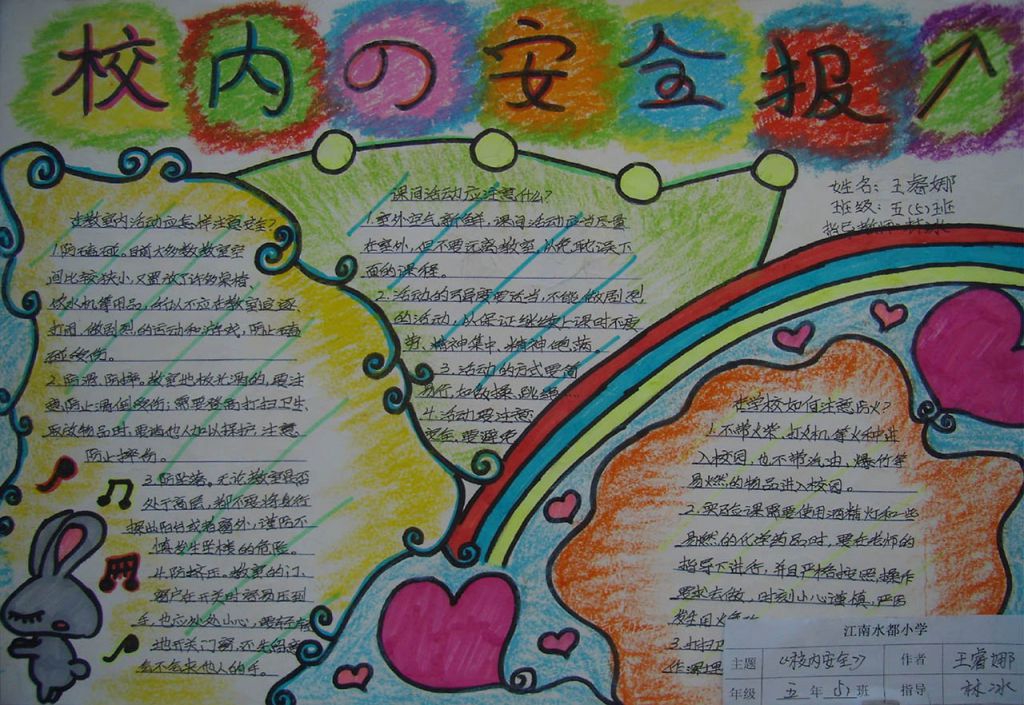 校内の安全报
姓名：王睿娜
班级：五(5)班
指导教师：林冰
在教室内活动应怎样注意安全？
1.防磕碰。目前大多数教室空
间比较狭小，又置放了许多桌椅、
饮水机等用品，所以不应在教室追逐、
打闹，做剧烈的运动和游戏，防止磕
碰受伤。
2.防滑、防摔。教室地板光滑的，要注
意防止滑倒受伤；需要登高打扫卫生、
取放物品时，要请他人加以保护，注意
防止摔伤。
3.防坠落。无论教室是否
处于高层，都不要将身体
探出阳台或者窗外，谨防不
慎发生坠楼的危险。
4.防挤压。教室的门、
窗户在开关时容易压到
手，也应处处小心，要轻轻
地开关门窗，还先留意
会不会夹他人的手。
课间活动应注意什么？
1.室外空气新鲜，课间活动应当尽量
在室外，但不要远离教室，以免耽误下
面的课程。
2.活动的强度要适当，不能做剧烈
的活动，以保证继续上课时不疲
劳、精神集中、精神饱满。
3.活动的方式要简
易行，如做操、跳绳
4.活动要注意
安全，要避免
在学校如何注意防火？
1.不带火柴、打火机等火种进
入校园，也不带汽油、爆竹等
易燃的物品进入校园。
2.实验课需要使用酒精灯和一些
易燃的化学药品时，要在老师的
指导下进行，并且严格按照操作
要求去做，时刻小心谨慎，严防
发生用火危
3.打扫卫
作深埋
江南水都小学
主题 《校内安全》 作者 王睿娜
年级 五年(5)班 指导 林冰